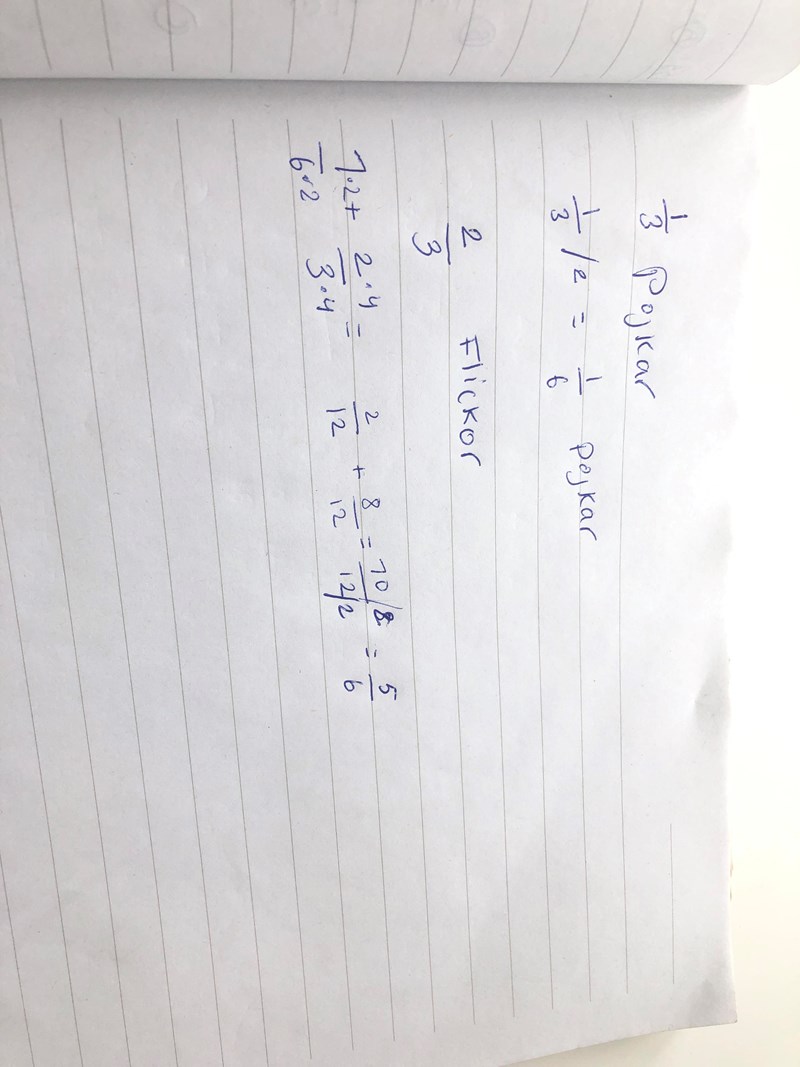 1/3 Pojkar
1/3 / 2 = 1/6 pojkar
2/3 Flickor
1·2/6·2 + 2·4/3·4 = 2/12 + 8/12 = 10/2 / 12/2 = 5/6